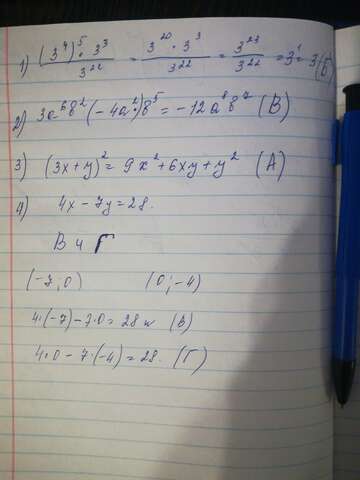 1) (3⁴)⁵ · 3³ / 3²² = 3²⁰ · 3³ / 3²² = 3²³ / 3²² = 3¹ = 3 (Б)
2) 3a⁶b²(-4a²)b⁵ = -12a⁸b⁷ (В)
3) (3x+y)² = 9x²+6xy+y² (А)
4) 4x - 7y = 28.
В и Г
(-7; 0) (0; -4)
4·(-7) - 7·0 = 28 и (В)
4·0 - 7·(-4) = 28. (Г)